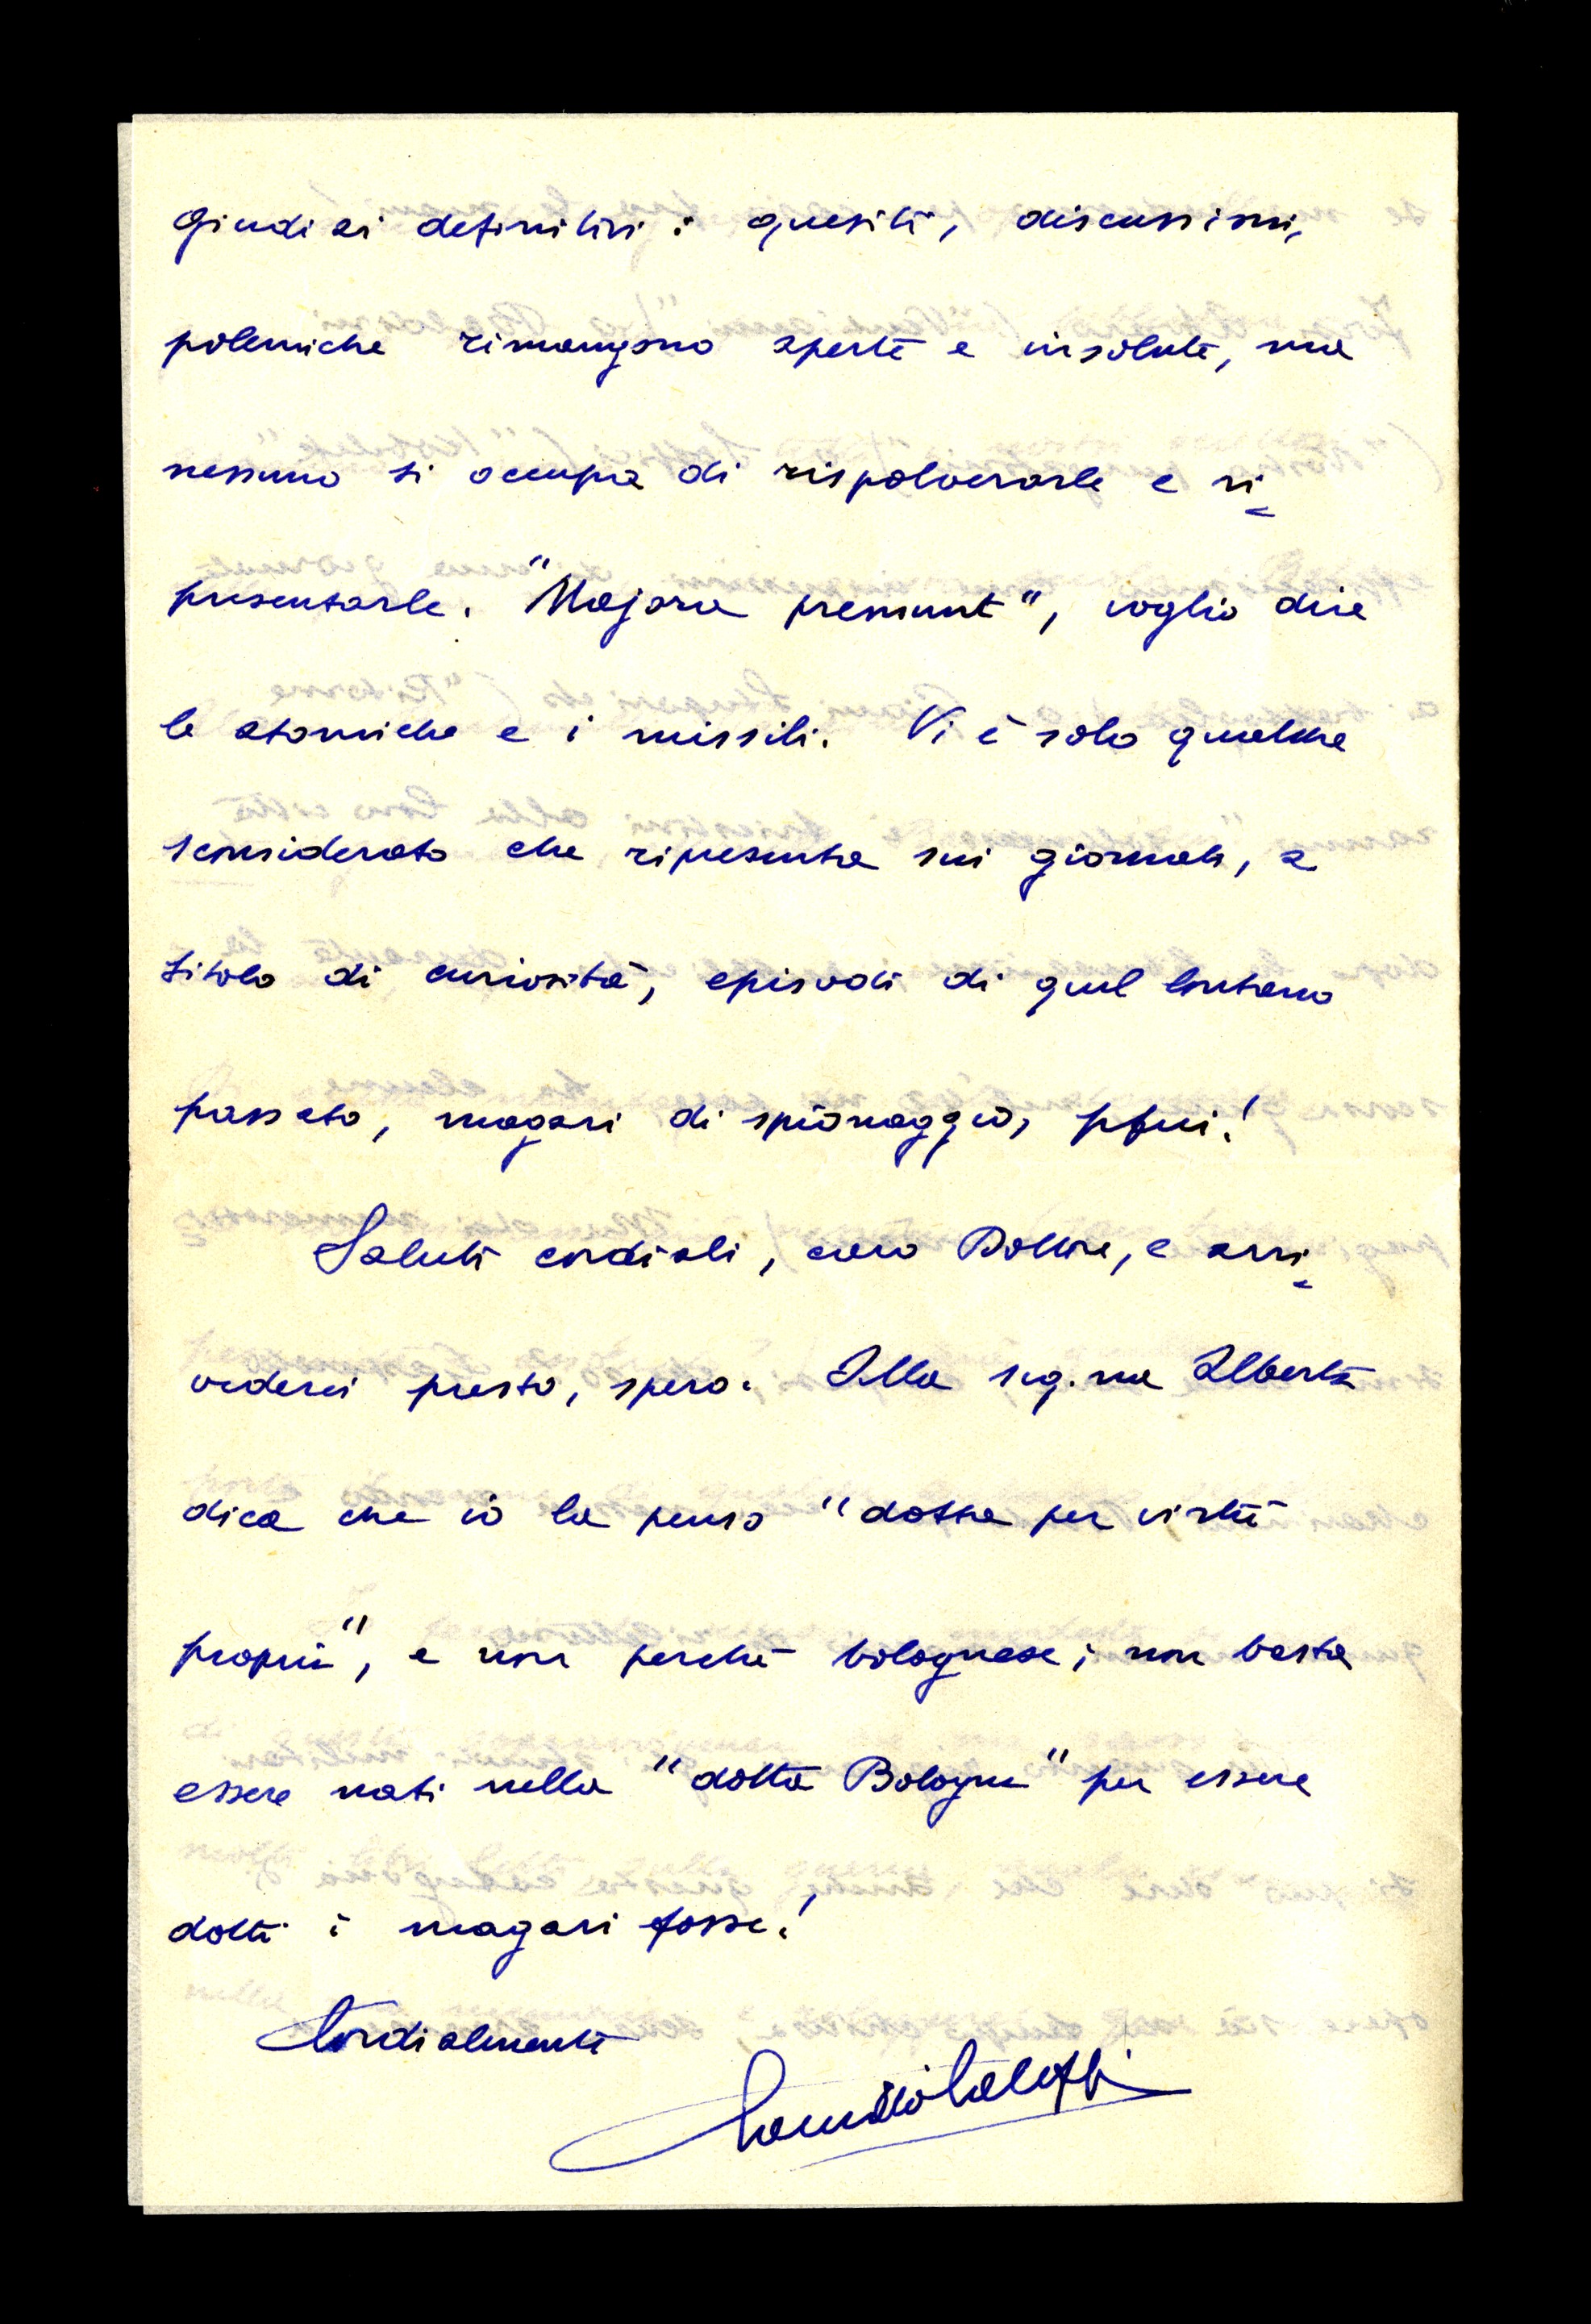 giudizi definitivi: quesiti, discussioni,
polemiche rimangono aperte e insolute, ma
nessuno si occupa di rispolverarle e ri=
presentarle. "Majora premunt", voglio dire
le atomiche e i missili. Vi è solo qualche
sconsiderato che ripresenta sui giornali, a
titolo di curiosità, episodi di quel lontano
passato, magari di spionaggio, pfui!
Saluti cordiali, caro Dottore, e arri=
vederci presto, spero. Alla sig.na Alberta
dica che io la penso "dotta per virtù
propria", e non perché bolognese; non basta
essere nati nella "dotta Bologna" per essere
dotti; magari fosse!
Cordialmente